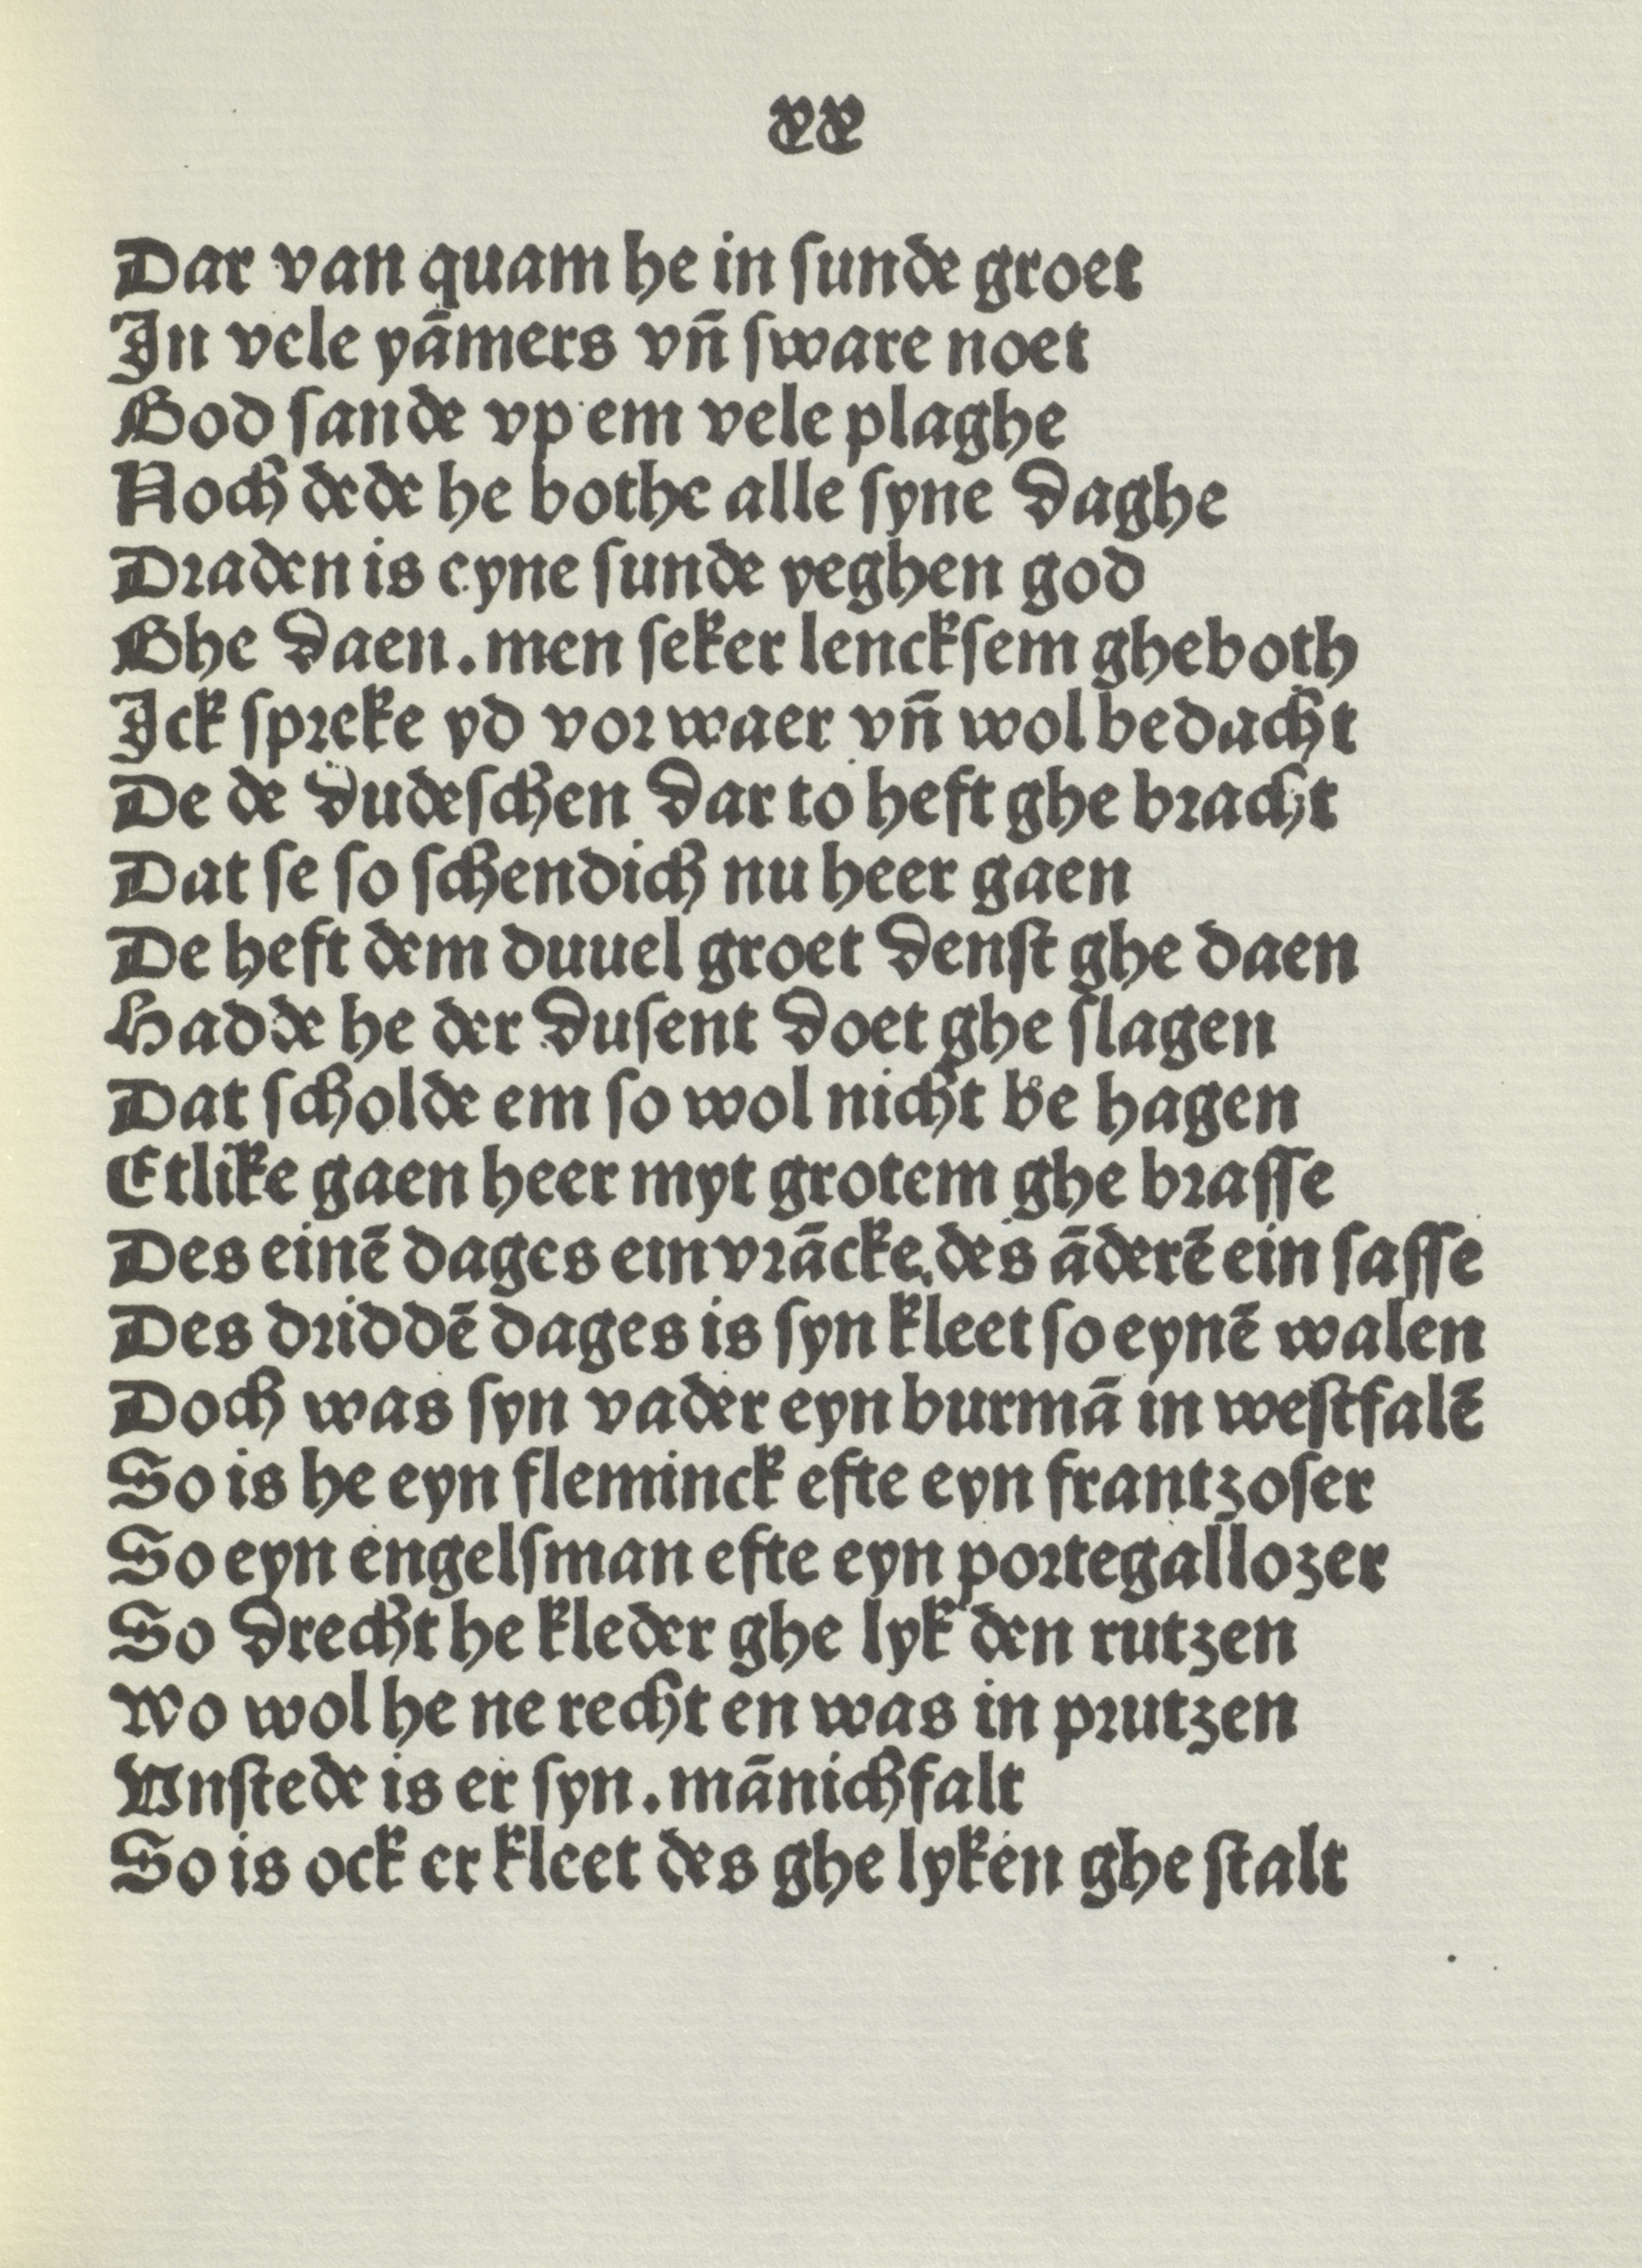 xx
Dar van quam he in ſunde groet
In vele yāmers vn̄ ſware noet
God ſande vp em vele plaghe
Noch dede he bothe alle ſyne daghe
Draden is eyne ſunde yeghen god
Ghe daen. men ſeker lenckſem gheboth
Ick ſpreke yd vor waer vn̄ wol bedacht
De de dudeſchen dar to heft ghe bracht
Dat ſe ſo ſchendich nu heer gaen
De heft dem duuel groet denſt ghe daen
Hadde he der duſent doet ghe ſlagen
Dat ſcholde em ſo wol nicht be hagen
Etlike gaen heer myt grotem ghe braſſe
Des einē dages ein vrācke. des āderē ein ſaſſe
Des driddē dages is ſyn kleet ſo eynē walen
Doch was ſyn vader eyn burmā in weſtfalē
So is he eyn fleminck efte eyn frantzoſer
So eyn engelſman efte eyn portegallozer
So drecht he kleder ghe lyk den rutzen
Wo wol he ne recht en was in prutzen
Vnſtede is er ſyn. mānichfalt
So is ock er kleet des ghe lyken ghe ſtalt